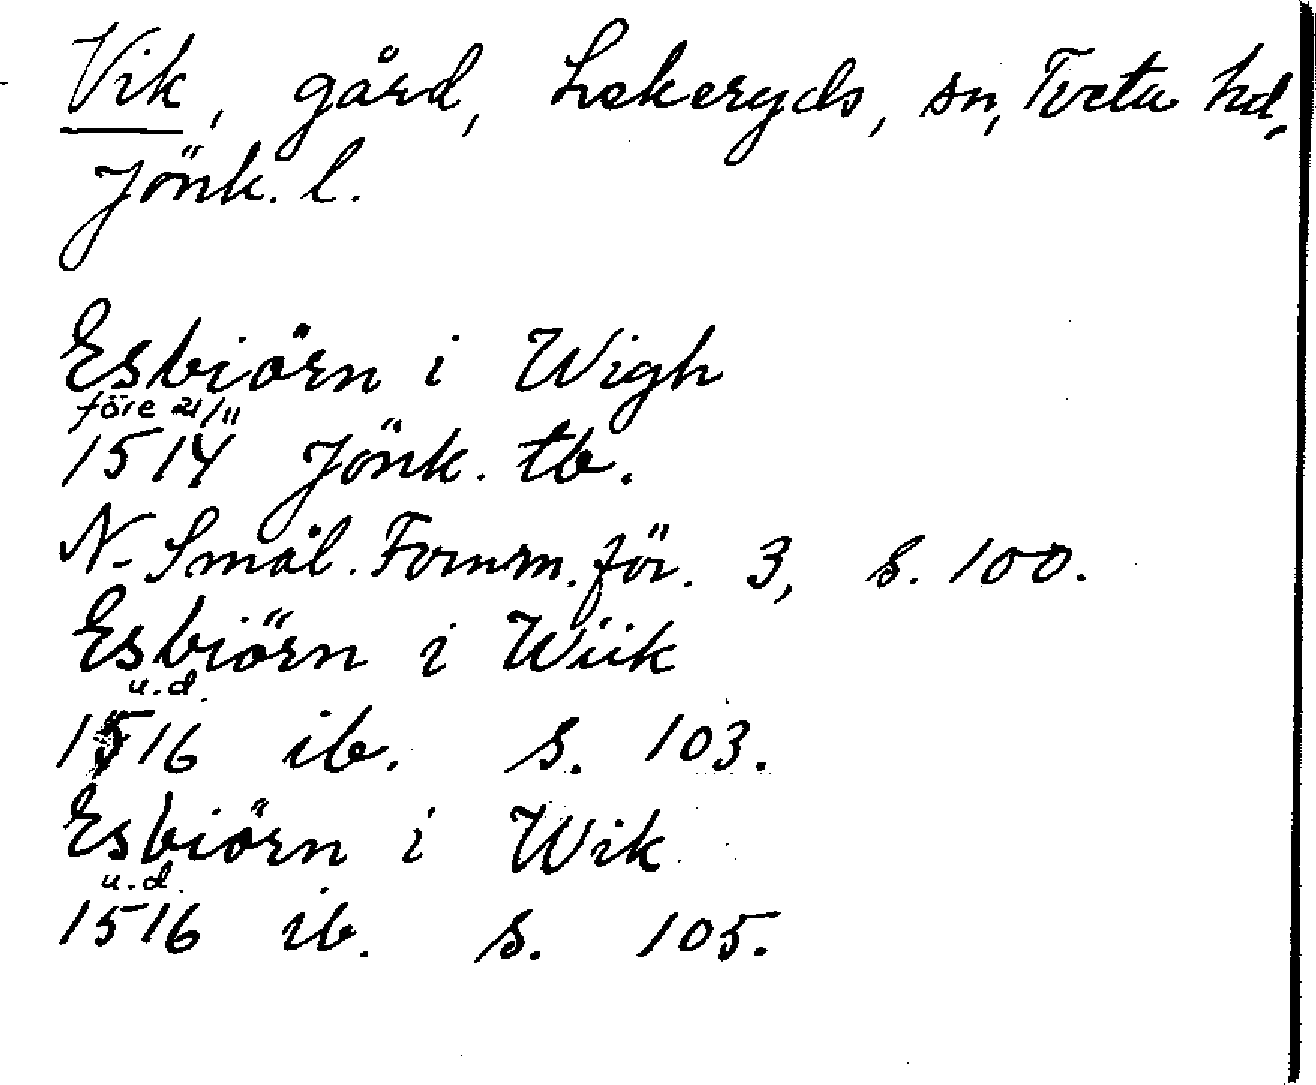 Vik, gård, Lekeryds, sn, Tveta hd,
Jönk. l.
Esbiörn i Wigh
före 21/11
1514 Jönk. tb.
N. Smål. Fornm. för. 3, s. 100.
Esbiörn i Wiik
u.d.
1516 ib. s. 103.
Esbiörn i Wik
u.d.
1516 ib. s. 105.